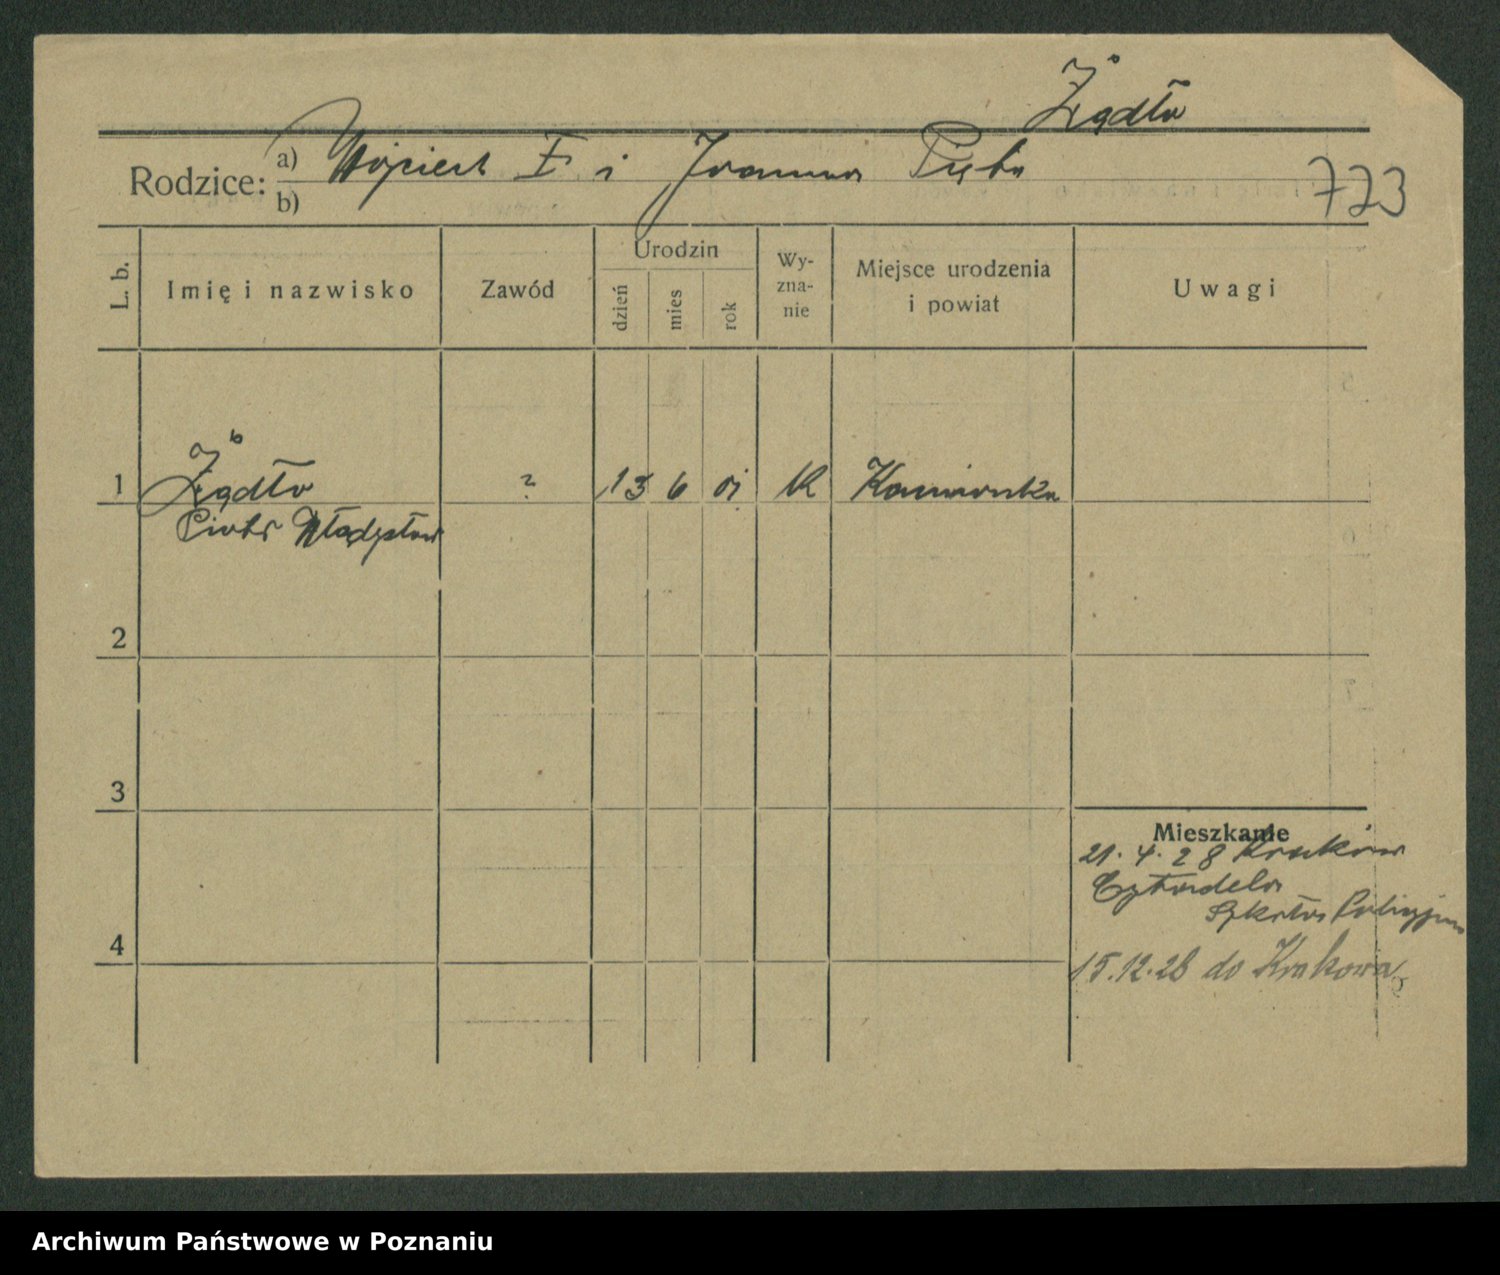 Żądło
Rodzice: a) Wojciech Ż i Joanna Pięta
b)
773
L. b.
Imię i nazwisko
Zawód
Urodzin
dzień
mies
rok
Wy-
zna-
nie
Miejsce urodzenia
i powiat
Uwagi
1
Żądło
Piotr Władysław
?
13 6 01
K
Kamionka
2
3
4
Mieszkanie
21. 4. 28 Kraków
Cytadela
Szkoła Policyjna
15.12.28 do Krakowa
Archiwum Państwowe w Poznaniu